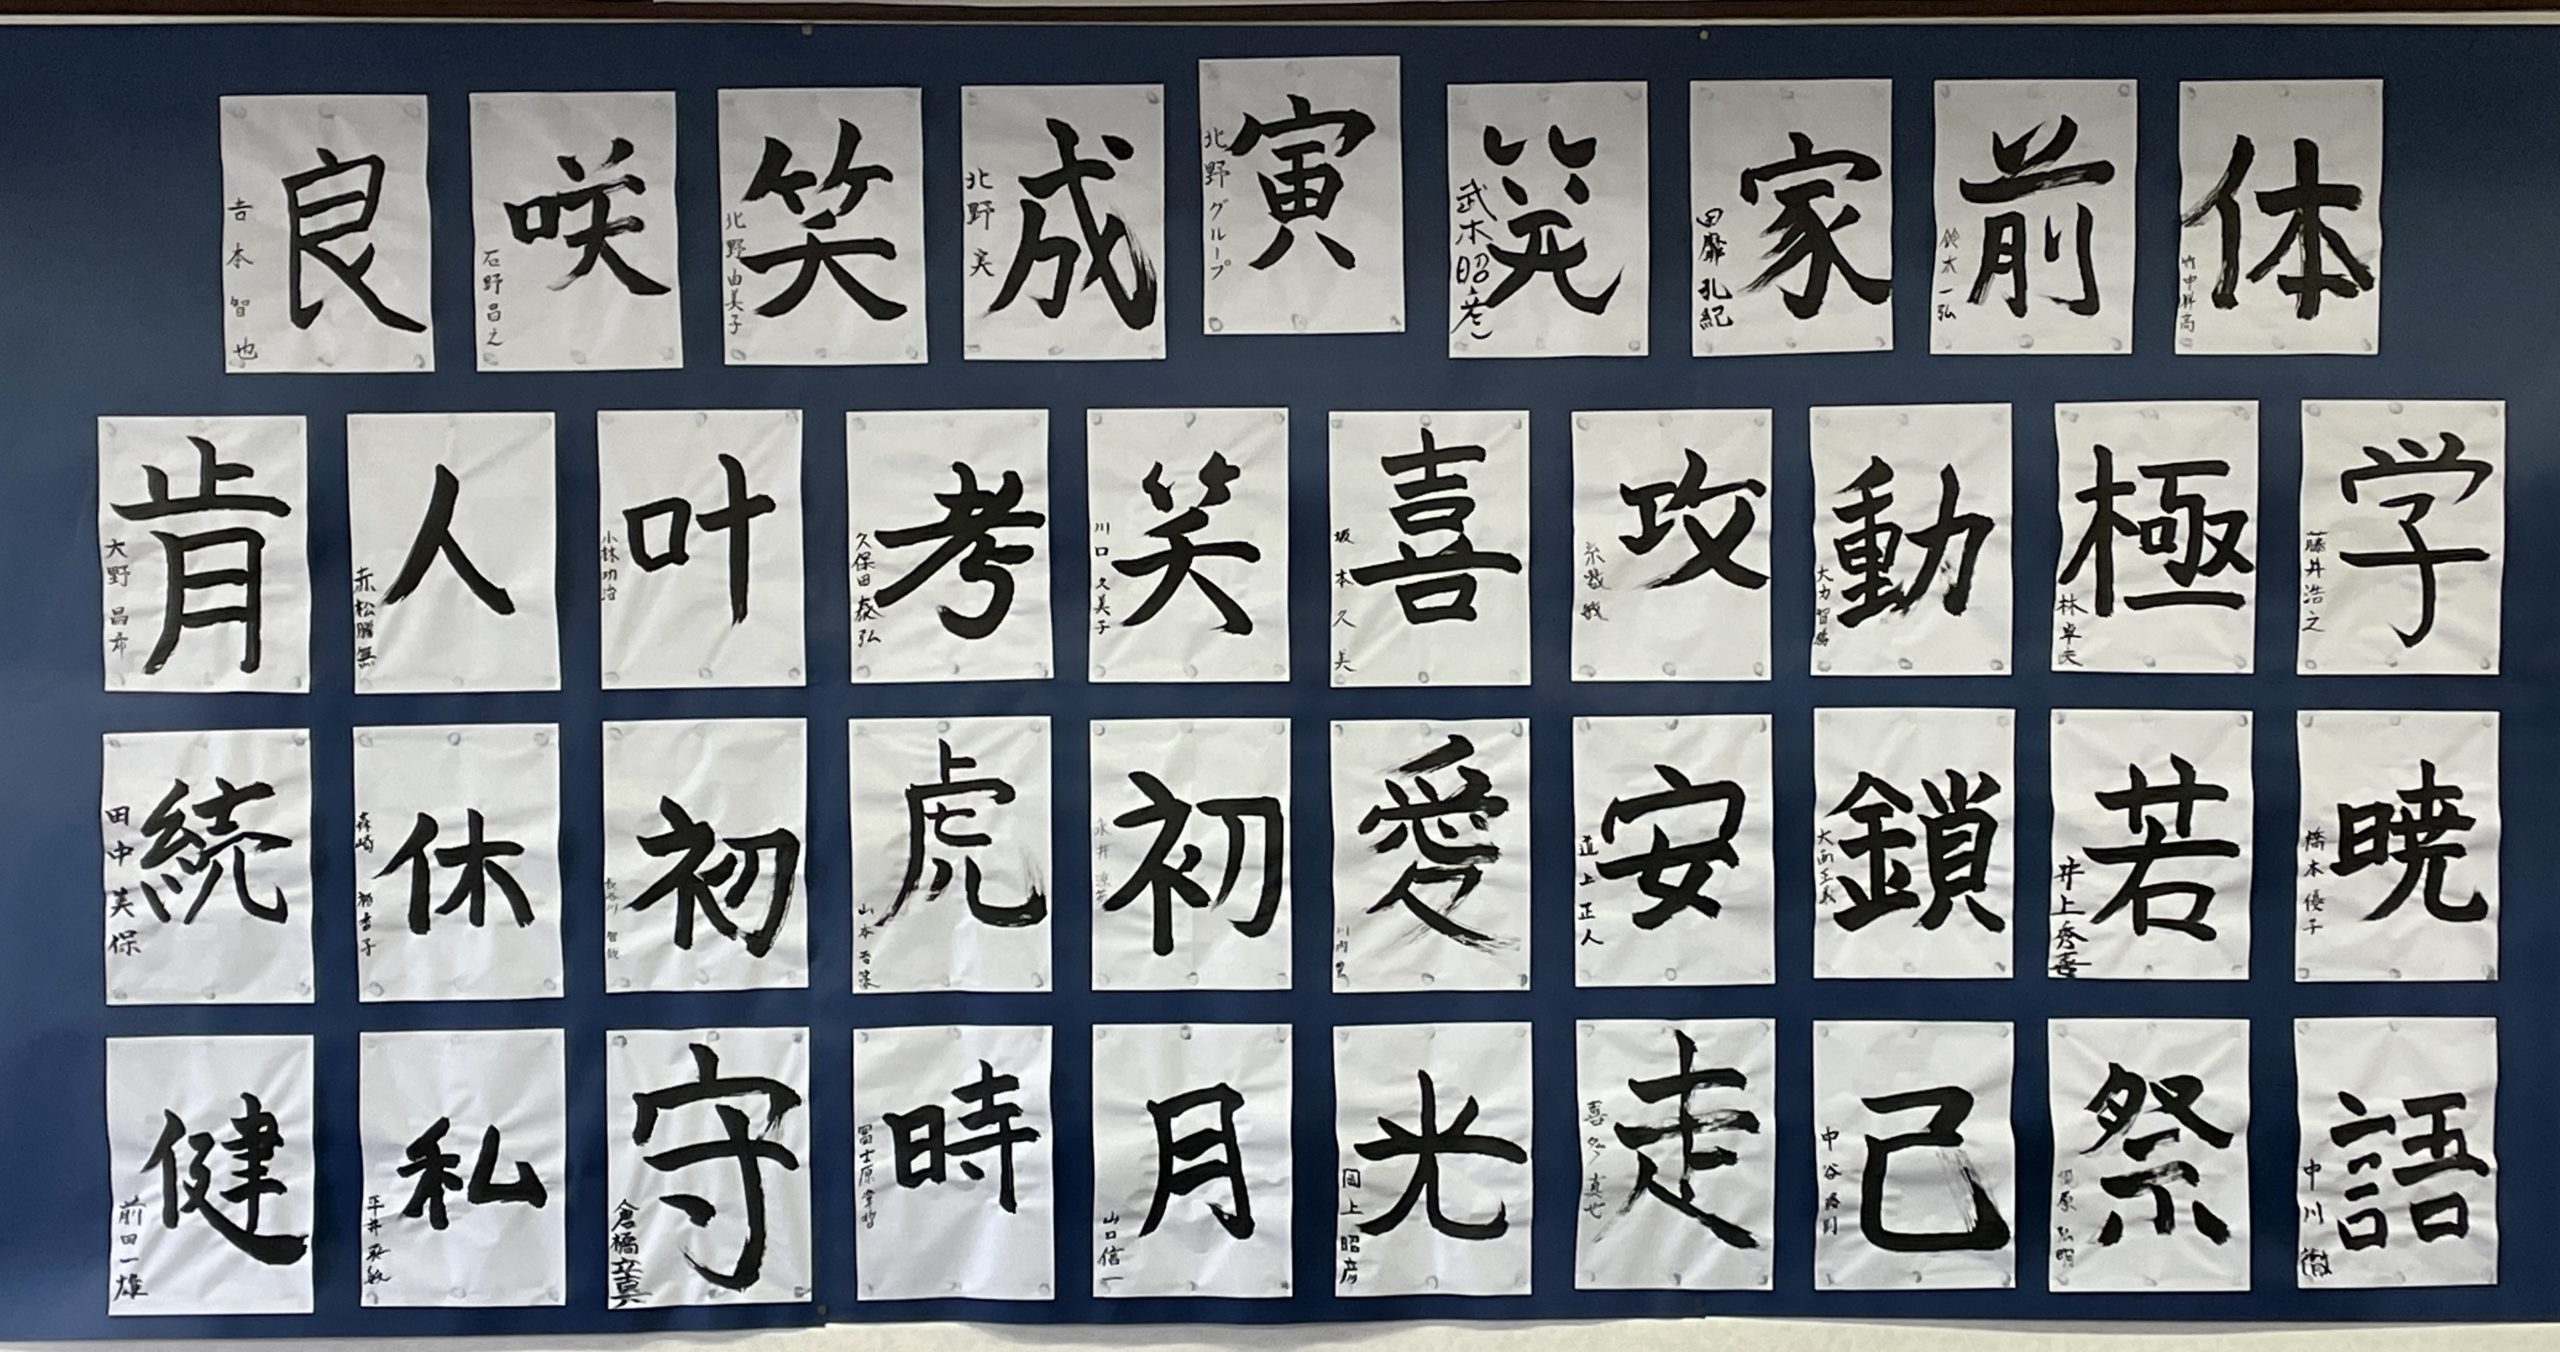 良 吉本智也
咲 石野昌之
笑 北野由美子
成 北野実
寅 北野グループ
武木昭彦
家 田 孔紀
前 鈴木一弘
体 竹中 高
肯 大野昌希
人 赤松勝無
叶 小林功治
考 久保田泰弘
笑 川口久美子
喜 坂本久美
攻
動 大力智
極 林卓夫
学 藤井浩之
続 田中美保
休 森崎
初 長谷川智哉
虎 山本
初 永井
愛 川内
安 道上正人
鎖 大西正義
若 井上秀喜
暁 橋本優子
健 前田一雄
私 平井 敏
守 倉橋立真
時 冨士原
月 山口信一
光 岡上昭彦
走 喜多真也
己 中谷
祭 弘明
語 中川徹